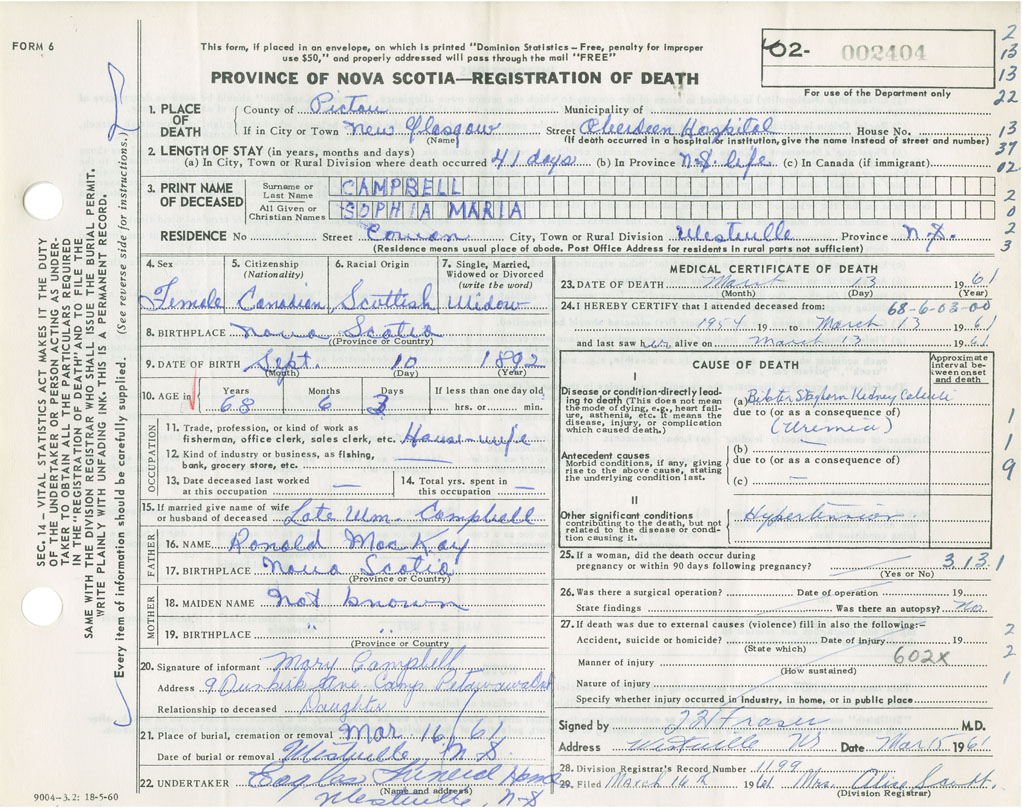 FORM 6
This form, if placed in an envelope, on which is printed "Dominion Statistics — Free, penalty for improper
use $50," and properly addressed will pass through the mail "FREE"
PROVINCE OF NOVA SCOTIA—REGISTRATION OF DEATH
62- 002404
For use of the Department only
2
13
13
22
13
37
02
2
0
2
3
1. PLACE OF DEATH
County of Pictou Municipality of
If in City or Town New Glasgow Street Aberdeen Hospital House No.
(Name) (If death occurred in a hospital or institution, give the name instead of street and number)
2. LENGTH OF STAY (in years, months and days)
(a) In City, Town or Rural Division where death occurred 41 days (b) In Province N.S. life (c) In Canada (if immigrant)
3. PRINT NAME OF DECEASED
Surname or Last Name CAMPBELL
All Given or Christian Names SOPHIA MARIA
RESIDENCE No Street Cowan City, Town or Rural Division Westville Province N.S.
(Residence means usual place of abode. Post Office Address for residents in rural parts not sufficient)
4. Sex 5. Citizenship (Nationality) 6. Racial Origin 7. Single, Married, Widowed or Divorced (write the word)
Female Canadian Scottish Widow
8. BIRTHPLACE Nova Scotia
(Province or Country)
9. DATE OF BIRTH Sept. 10 1892
(Month) (Day) (Year)
10. AGE in Years Months Days If less than one day old
68 6 3 hrs. or min.
OCCUPATION
11. Trade, profession, or kind of work as
fisherman, office clerk, sales clerk, etc. House-wife
12. Kind of industry or business, as fishing,
bank, grocery store, etc.
13. Date deceased last worked at this occupation —
14. Total yrs. spent in this occupation —
15. If married give name of wife
or husband of deceased Late Wm. Campbell
FATHER
16. NAME Ronald MacKay
17. BIRTHPLACE Nova Scotia
(Province or Country)
MOTHER
18. MAIDEN NAME Not known
19. BIRTHPLACE " "
(Province or Country)
20. Signature of informant Mary Campbell
Address 9 Dunkirk Ave Camp Petawawa Ont
Relationship to deceased Daughter
21. Place of burial, cremation or removal Mar 16/61
Date of burial or removal Westville N.S.
22. UNDERTAKER Eagles Funeral Home
(Name and address)
Westville, N.S
9004-3.2: 18-5-60
MEDICAL CERTIFICATE OF DEATH
23. DATE OF DEATH March 13 1961
(Month) (Day) (Year)
68-6-03-00
24. I HEREBY CERTIFY that I attended deceased from:
1954 19 to March 13 1961
and last saw her alive on March 13 1961
CAUSE OF DEATH
Approximate interval between onset and death
I
Disease or condition directly leading to death (This does not mean the mode of dying, e.g., heart failure, asthenia, etc. It means the disease, injury, or complication which caused death.)
(a) Staghorn Kidney Calculi
due to (or as a consequence of)
(Uremia)
(b)
Antecedent causes
Morbid conditions, if any, giving rise to the above cause, stating the underlying condition last.
due to (or as a consequence of)
(c) —
1
1
9
II
Other significant conditions
contributing to the death, but not related to the disease or condition causing it.
Hypertension
25. If a woman, did the death occur during
pregnancy or within 90 days following pregnancy?
(Yes or No)
3.13.1
26. Was there a surgical operation? Date of operation 19
State findings Was there an autopsy? No.
27. If death was due to external causes (violence) fill in also the following:—
Accident, suicide or homicide? Date of injury 19
(State which)
602X
Manner of injury
(How sustained)
Nature of injury
Specify whether injury occurred in industry, in home, or in public place
2
2
1
Signed by Fraser M.D.
Address Westville NS Date Mar 15 1961
28. Division Registrar's Record Number 1199
29. Filed March 16th 1961 Mrs. Alice Scott
(Division Registrar)
SEC. 14 — VITAL STATISTICS ACT MAKES IT THE DUTY
OF THE UNDERTAKER OR PERSON ACTING AS UNDER-
TAKER TO OBTAIN ALL THE PARTICULARS REQUIRED
IN THE "REGISTRATION OF DEATH" AND TO FILE THE
SAME WITH THE DIVISION REGISTRAR WHO SHALL ISSUE THE BURIAL PERMIT.
WRITE PLAINLY WITH UNFADING INK. THIS IS A PERMANENT RECORD.
Every item of information should be carefully supplied. (See reverse side for instructions.)